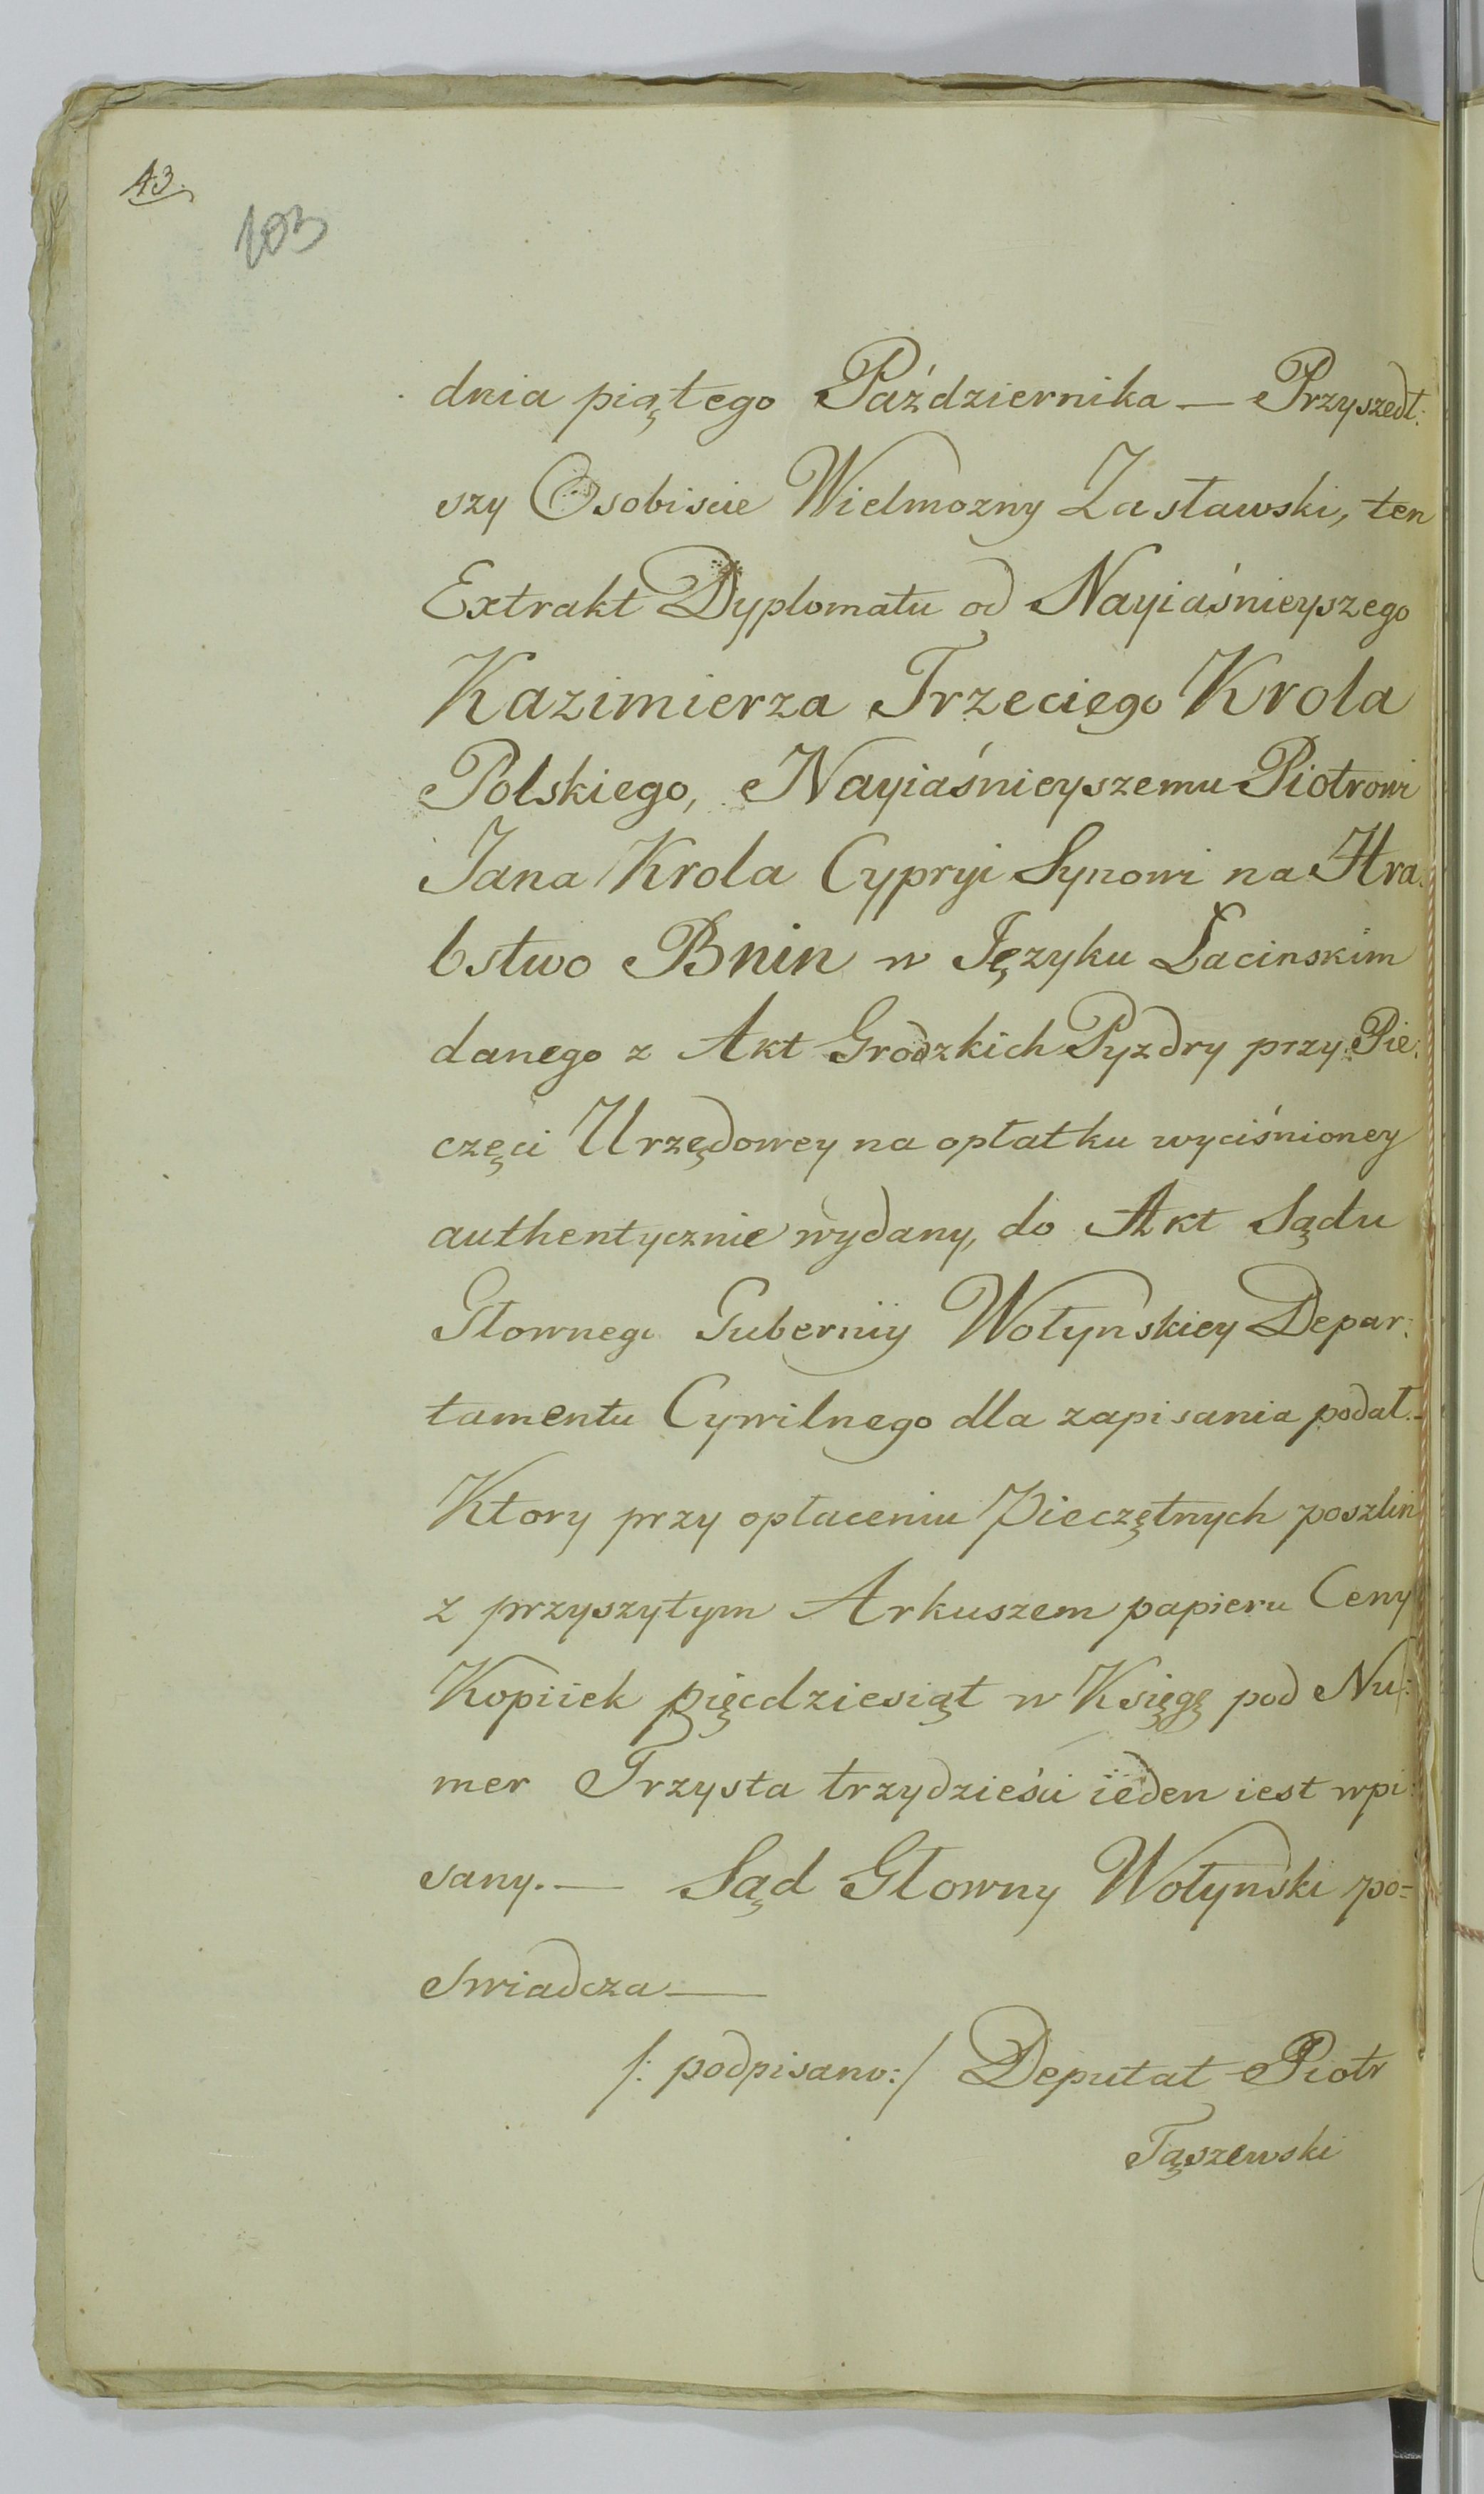 43.
103
dnia piątego Października — Przyszedł:
szy Osobiscie Wielmozny Zasławski, ten
Extrakt Dyplomatu od Nayiaśnieyszego
Kazimierza Trzeciego Krola
Polskiego, Nayiaśnieyszemu Piotrowi
Jana Krola Cypryi Synowi na Hra:
bstwo Bnin w Języku Łacinskim
danego z Akt Grodzkich Pyzdry przy Pie:
częci Urzędowey na opłatku wyciśnioney
authentycznie wydany, do Akt Sądu
Głownego Gubernij Wołynskiey Depar:
tamentu Cywilnego dla zapisania podał.—
Ktory przy opłaceniu Pieczętnych poszlin
z przyszytym Arkuszem papieru Ceny
Kopiiek pięcdziesiąt w Księgę pod Nu:
mer Trzysta trzydzieści ieden iest wpi:
sany. — Sąd Głowny Wołynski po=
swiadcza —
/: podpisano :/ Deputat Piotr
Tąszewski